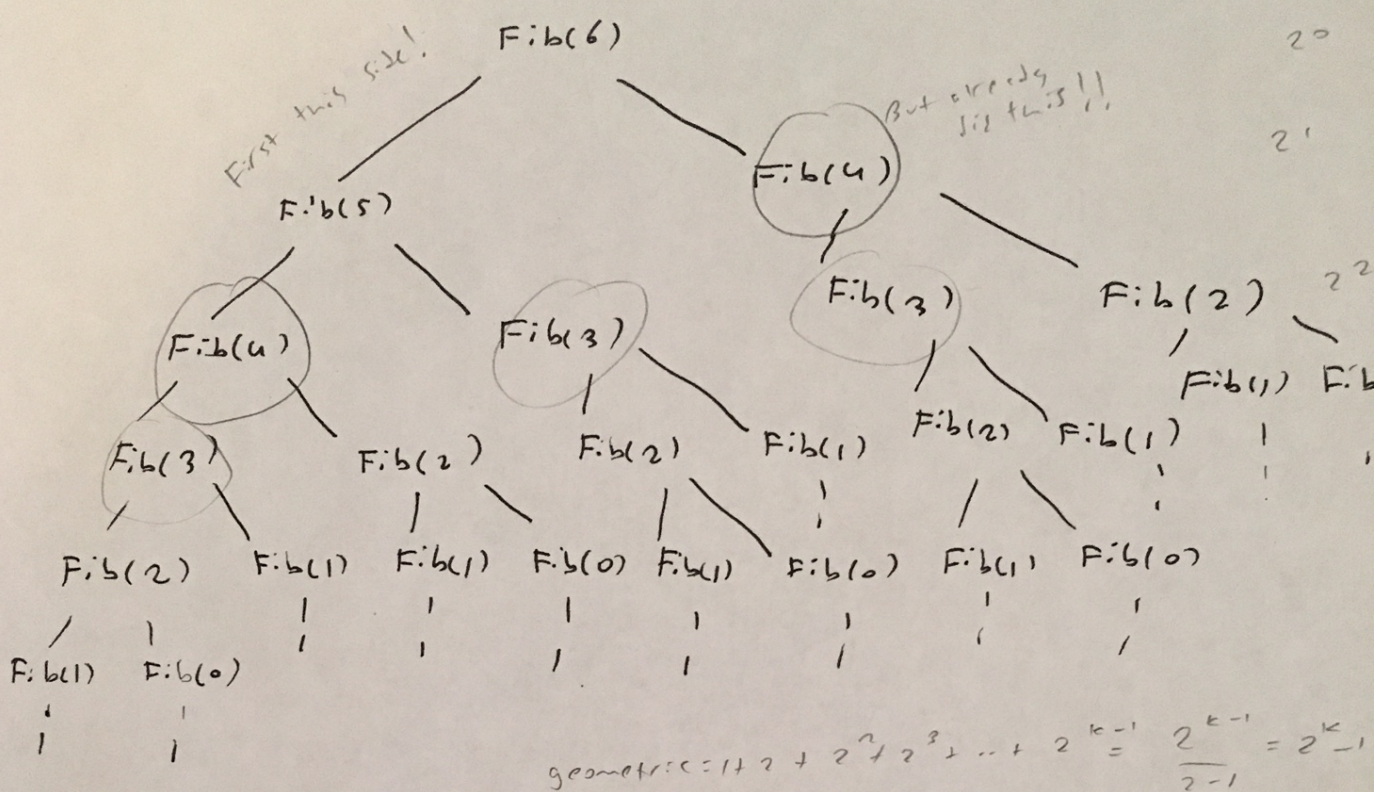 Fib(6)
2^0
First this side!
But already
did this!!
2^1
Fib(5)
Fib(4)
2^2
Fib(4)
Fib(3)
Fib(3)
Fib(2)
Fib(1)
Fib
Fib(3)
Fib(2)
Fib(2)
Fib(1)
Fib(2)
Fib(1)
Fib(2)
Fib(1)
Fib(1)
Fib(0)
Fib(1)
Fib(0)
Fib(1)
Fib(0)
Fib(1)
Fib(0)
geometric = 1 + 2 + 2^2 + 2^3 + ... + 2^{k-1} = \frac{2^{k-1}}{2-1} = 2^k - 1